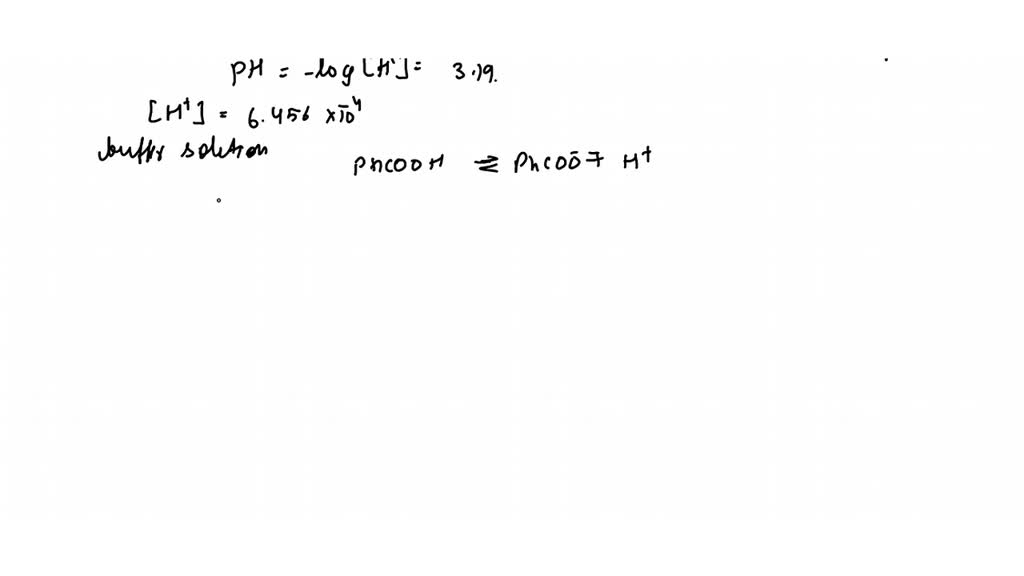 PH = -log [H⁺] = 3.19.
[H⁺] = 6.456 × 10⁻⁴
buffer solution
PhCOOH ⇌ PhCOO⁻ + H⁺